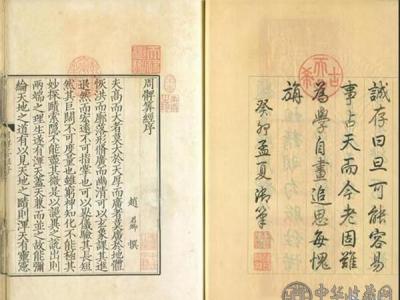 誠存曰旦可能容易
事占天而今老固難
為學自畫追思每愧
旃
癸卯孟夏御筆
周髀算經序
趙君卿
夫高而大者莫大於天厚而廣者莫廣於地體
恢洪而廓落形脩廣而幽清可以玄象課其進
退然而宏遠不可指掌也可以晷儀驗其長短
然其巨闊不可度量也雖窮神知化不能極其
妙探賾索隱不能盡其微是以詭異之說出則
兩端之理生遂有渾天蓋天兼而並之故能彌
綸天地之道有以見天地之賾則渾天有靈憲
中华收藏网